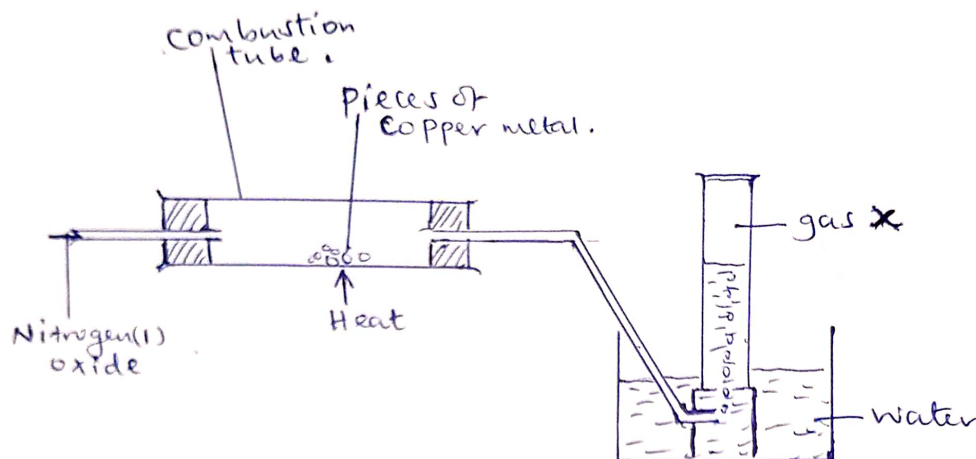 Combustion
tube.
pieces of
copper metal.
gas X
Heat
Nitrogen(1)
oxide
water